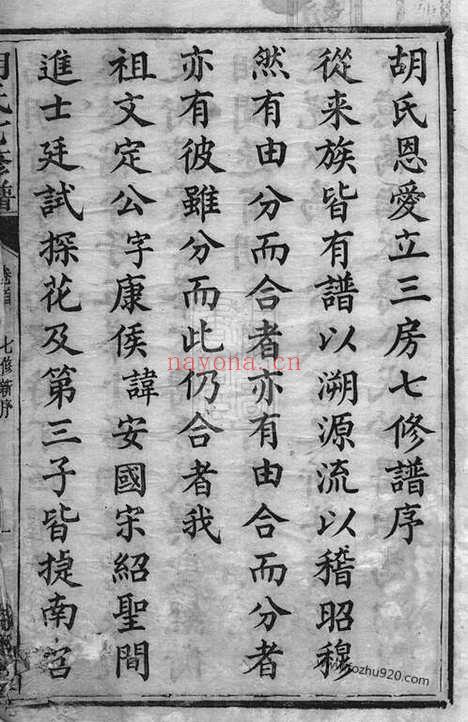 胡氏恩愛立三房七修譜序
從来族皆有譜以溯源流以稽昭穆
然有由分而合者亦有由合而分者
亦有彼雖分而此仍合者我
祖文定公字康侯諱安國宋紹聖間
進士廷試探花及第三子皆捷南宫
胡氏七修譜
卷首
七修新序
一
nayona.cn
www.kozhu920.com